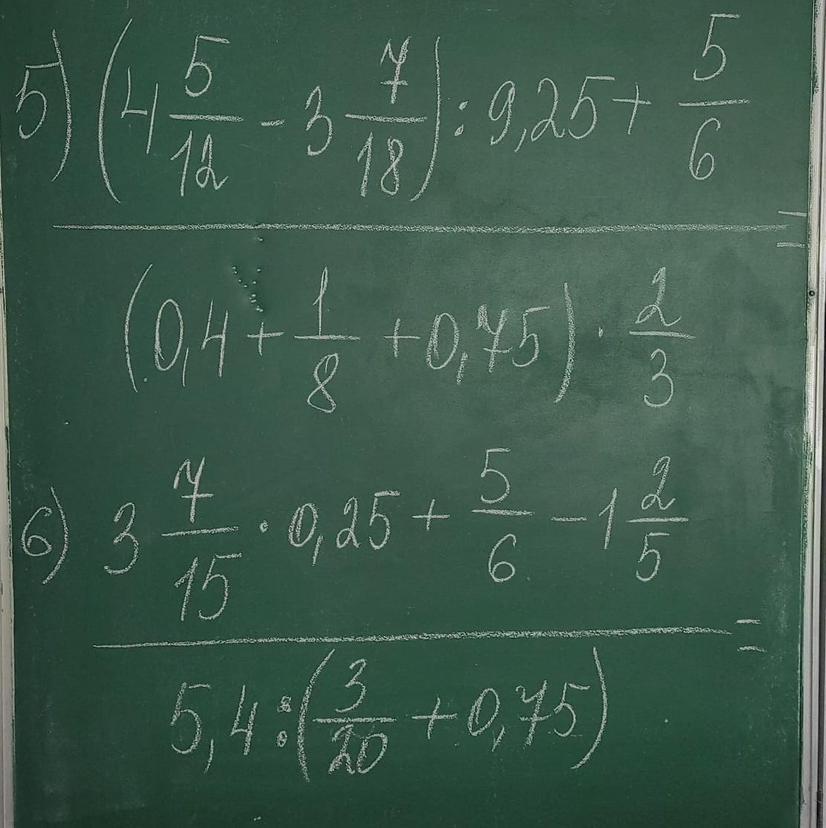 5) (4 5/12 - 3 7/18) : 9,25 + 5/6
=
(0,4 + 1/8 + 0,75) · 2/3
6) 3 7/15 · 0,25 + 5/6 - 1 2/5
=
5,4 : (3/20 + 0,75)